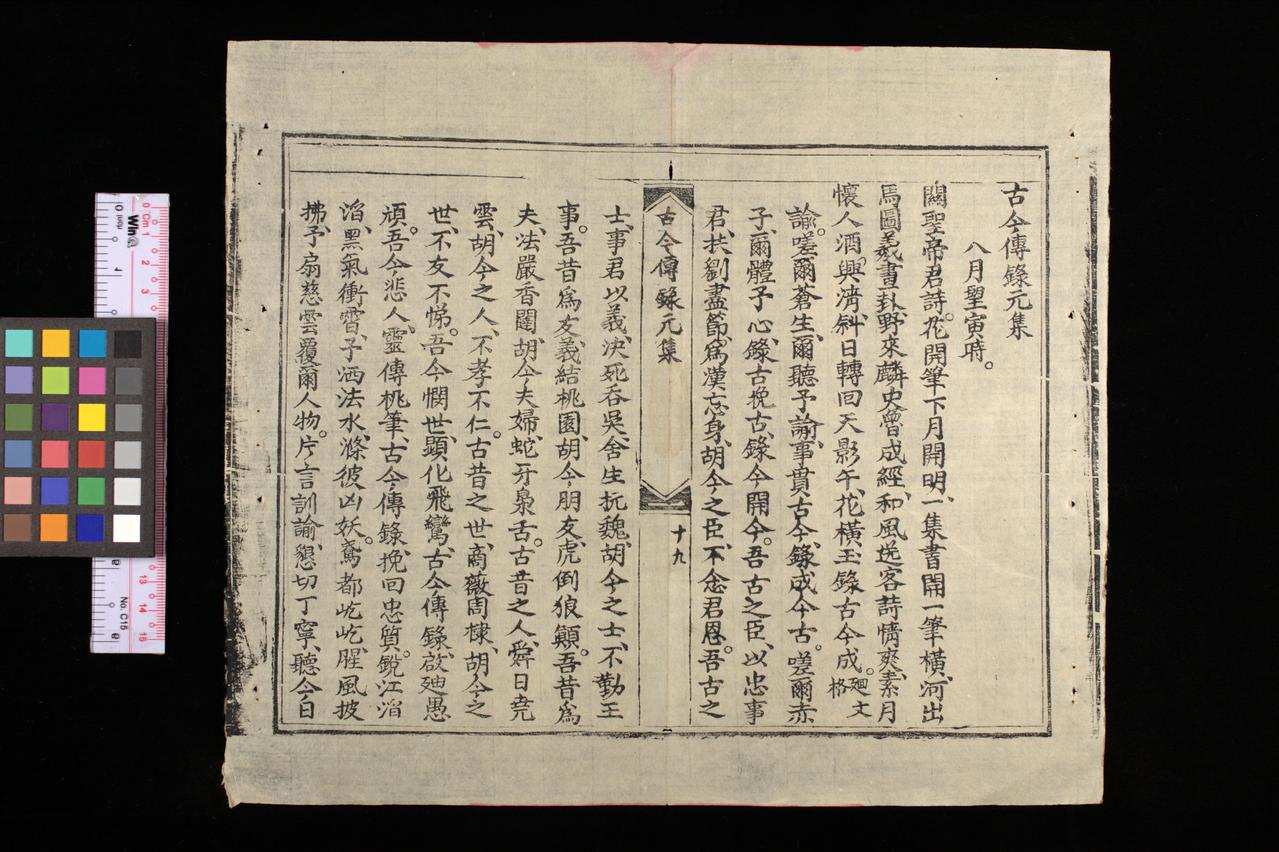 古今傳錄元集
八月望寅時。
關聖帝君詩。花開筆下月開明、一集書開一筆橫、河出
馬圖羲畫卦、野來麟史會成經、和風送客詩情爽、素月
懷人酒興清、斜日轉回天影午、花橫玉錄古今成。廻文格
諭。嗟爾蒼生、爾聽予諭、事貫古今、錄成今古。嗟爾赤
子、爾體予心、錄古挽古、錄今開今。吾古之臣、以忠事
君、拱劉盡節、爲漢忘身、胡今之臣、不念君恩。吾古之
古今傳錄元集
十九
士、事君以義、決死吞吳、舍生抗魏、胡今之士、不勤王
事。吾昔爲友、義結桃園、胡今朋友、虎倒狼顛。吾昔爲
夫、法嚴香閨、胡今夫婦、蛇牙梟舌。古昔之人、舜日堯
雲、胡今之人、不孝不仁。古昔之世、商薇周棣、胡今之
世、不友不悌。吾今憫世、顯化飛鸞、古今傳錄、啟廸愚
頑。吾今悲人、靈傳桃筆、古今傳錄、挽回忠質。銳江滔
滔、黑氣衝霄、予洒法水、滌彼凶妖。鳶都屹屹、腥風披
拂、予扇慈雲、覆爾人物。片言訓諭、懇切丁寧、聽今日
Win
Cm
No. C15
0 1 2 3 13 14 15